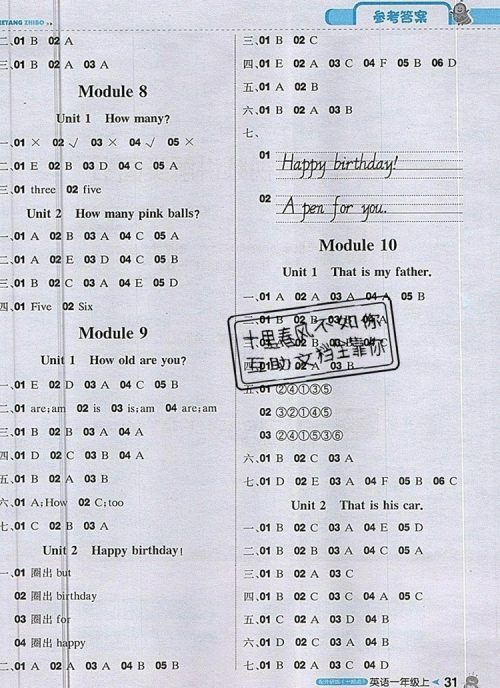 ZETANG ZHIBO
参考答案
二、01 B 02 A
三、01 B 02 A 03 A
Module 8
Unit 1 How many?
一、01 × 02 √ 03 × 04 √ 05 ×
二、01 E 02 B 03 D 04 C 05 A
三、01 three 02 five
Unit 2 How many pink balls?
一、01 A 02 B 03 A 04 C 05 A
二、01 A 02 E 03 D 04 C 05 B
三、01 B 02 C 03 A 04 E 05 D
四、01 Five 02 Six
Module 9
Unit 1 How old are you?
一、01 E 02 D 03 A 04 C 05 B
二、01 are;am 02 is 03 is;am 04 are;am
三、01 B 02 B 03 A 04 A
四、01 D 02 C 03 B 04 A
五、01 B 02 A 03 B
六、01 A;How 02 C;too
七、01 C 02 B 03 A
Unit 2 Happy birthday!
一、01 圈出 but
02 圈出 birthday
03 圈出 for
04 圈出 happy
二、01 A 02 A 03 B 04 A 05 A
三、01 B 02 C
四、01 E 02 A 03 C 04 F 05 B 06 D
五、01 A 02 B
六、01 B 02 A 03 B
七、
01 Happy birthday!
02 A pen for you.
Module 10
Unit 1 That is my father.
一、01 A 02 A 03 A 04 A 05 B
十里春风不如你
互助文档全靠你
五、01 ②④①③⑤
02 ③②①④⑤
03 ②④①⑤③⑥
六、01 B 02 C 03 A
七、01 D 02 E 03 A 04 F 05 B 06 C
Unit 2 That is his car.
一、01 B 02 C 03 A 04 E 05 D
二、01 B 02 B 03 A 04 C 05 A
三、01 B 02 A 03 C
四、01 B 02 C 03 C 04 A 05 C
五、01 C 02 A 03 D 04 B
六、01 D 02 C 03 A 04 B
七、01 B 02 D 03 A 04 C 04 D
英语一年级上 31